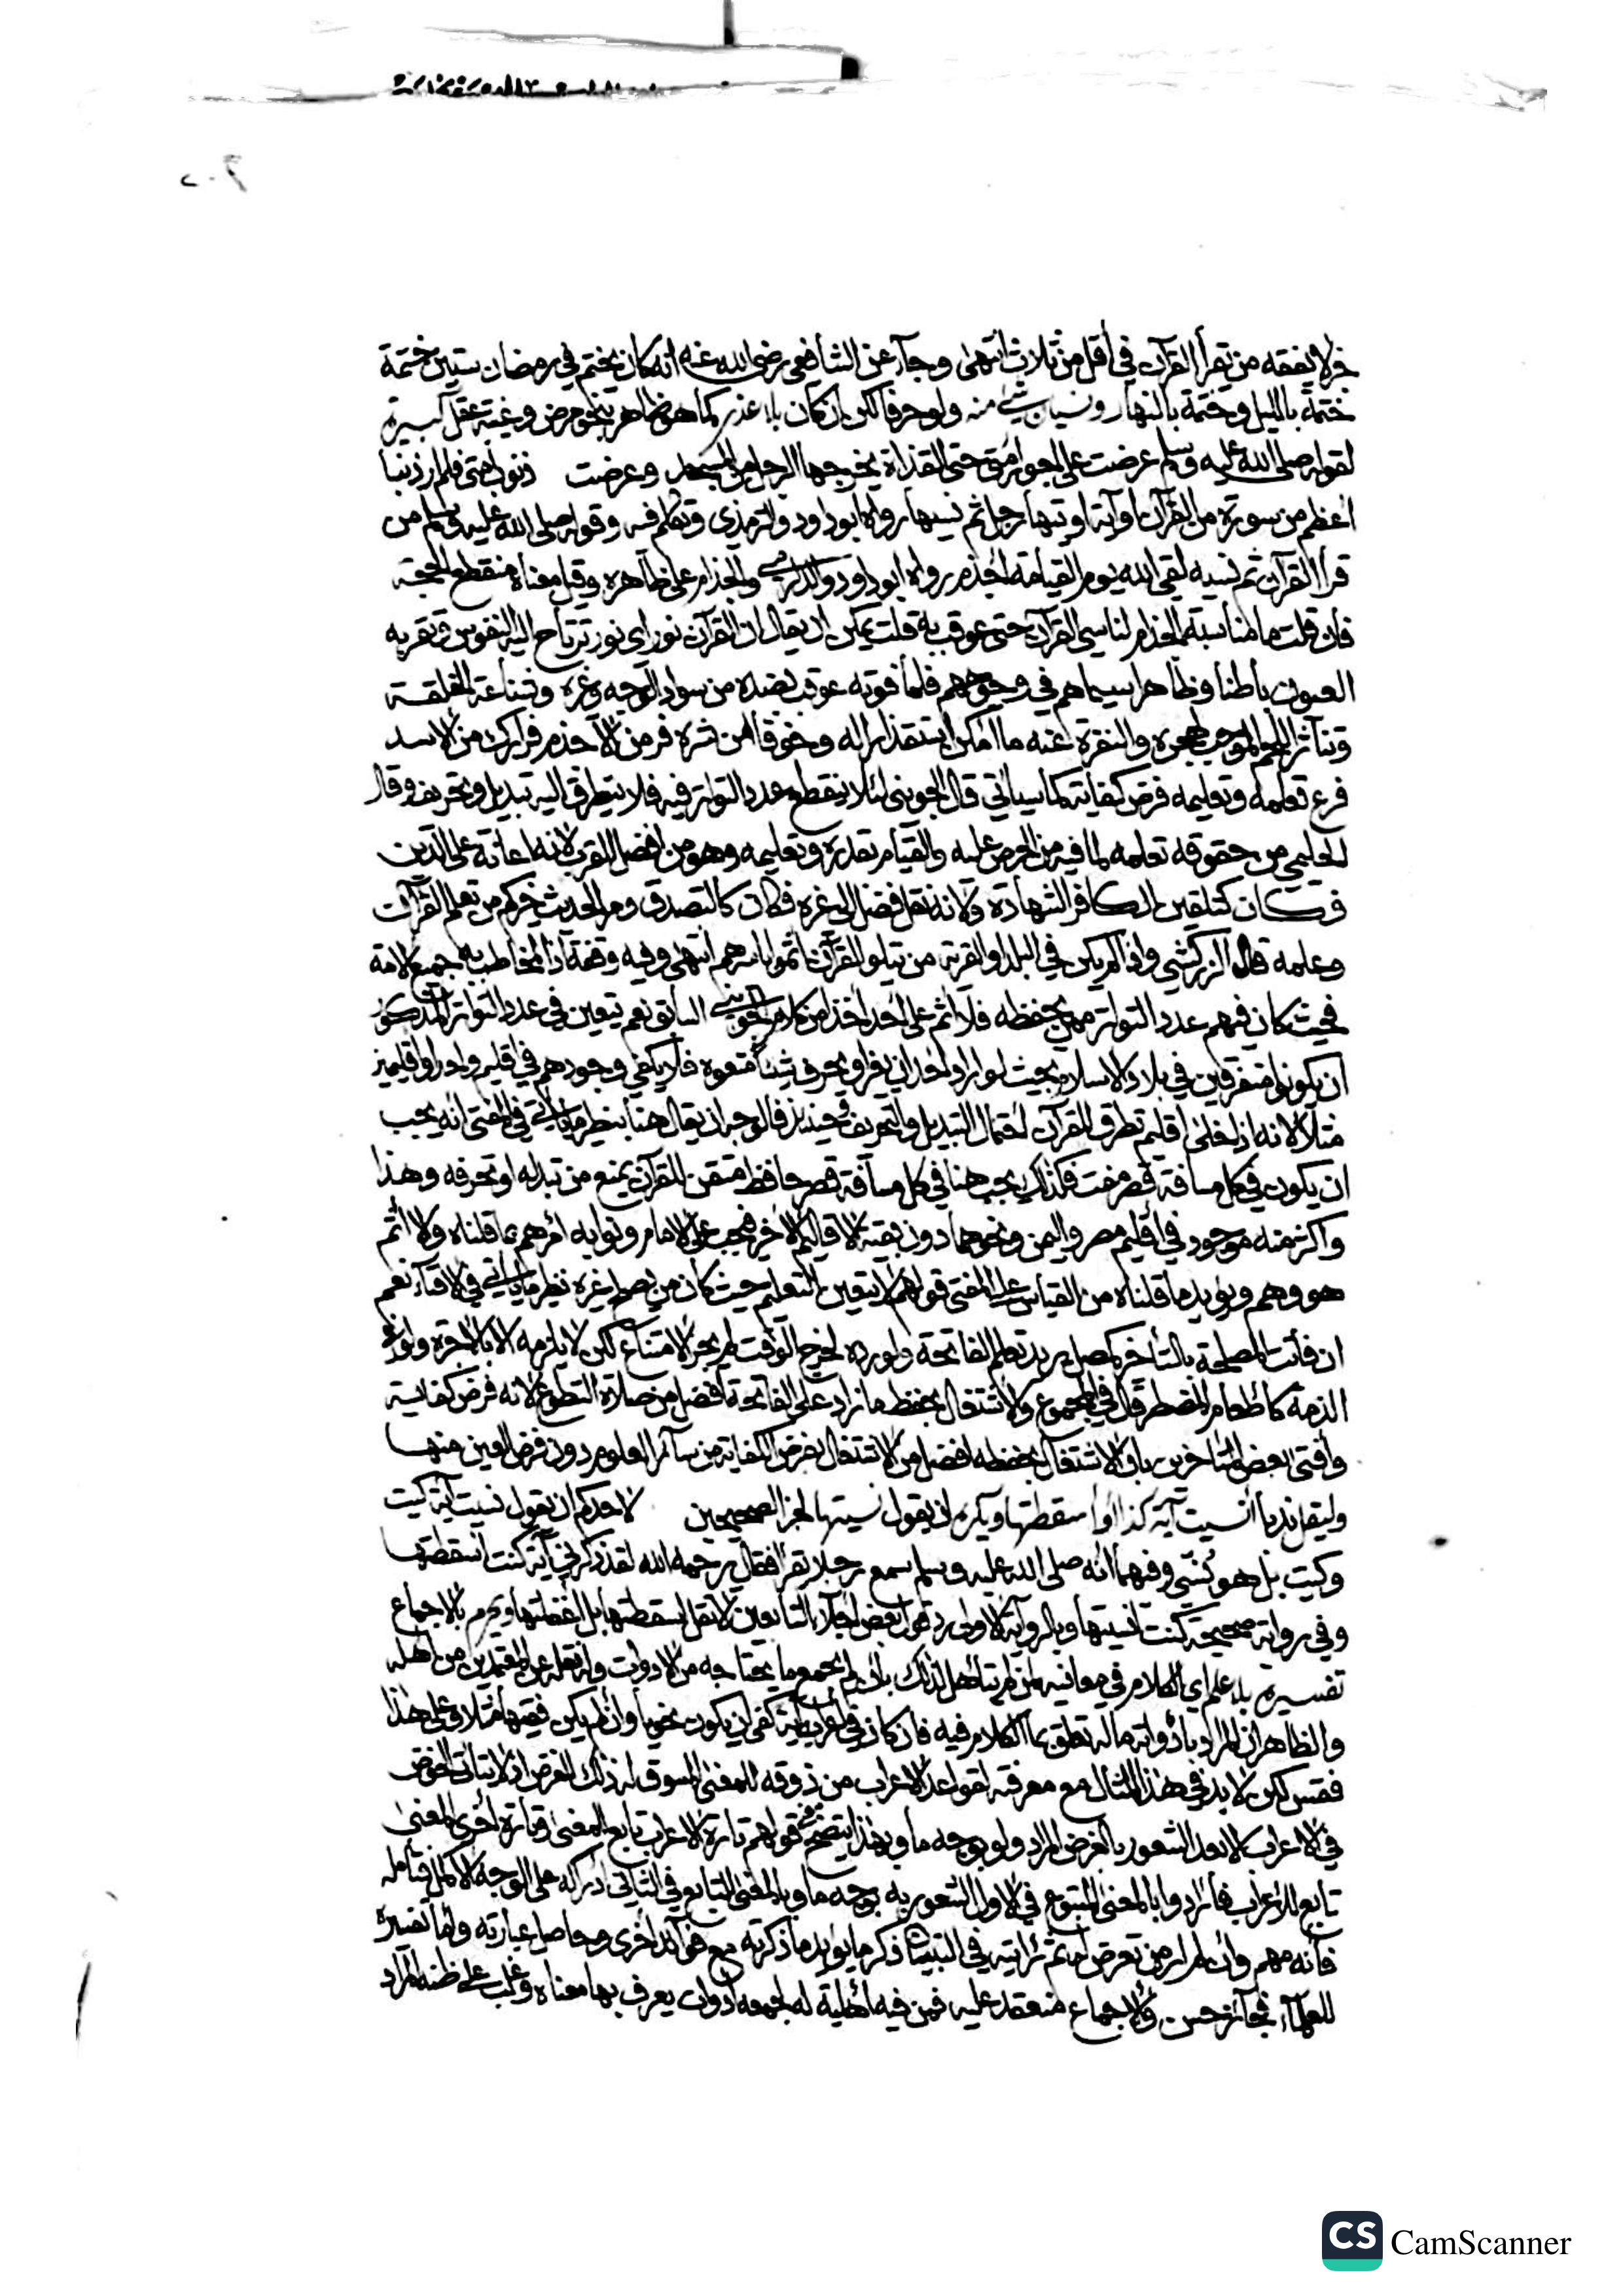 خبر لا يفقه من يقرأ القرآن في أقل من ثلاث انتهى وجاء عن الشافعي رضي الله عنه انه كان يختم في رمضان ستين ختمة
ختمة بالليل وختمة بالنهار ونسيان شيء منه ولو حرفا لكن ان كان بلا عذر كما هو ظاهر بنحو مرض وغيبة عقل كبيرة
لقوله صلى الله عليه وسلم عرضت علي اجور امتي حتى القذاة يخرجها الرجل من المسجد وعرضت ذنوب امتي فلم ار ذنبا
أعظم من سورة من القرآن او آية اوتيها رجل ثم نسيها رواه ابو داود والترمذي وتكلم فيه وقوله صلى الله عليه وسلم من
قرأ القرآن ثم نسيه لقي الله يوم القيامة اجذم رواه ابو داود والدارمي والجذام على ظاهره وقيل معناه منقطع الحجة
فان قلت ما مناسبة الجذام لناسي القرآن حتى عوقب به قلت يمكن ان يقال ان القرآن نور اي نور ترتاح اليه النفوس وتقر به
العيون باطنا وظاهرا سيماهم في وجوههم فلما فوته عوقب بضده من سواد الوجه وغيره وشناعة الخلقة
وتناثر اللحم الموجب لهجره والنفرة عنه ما امكن استقذارا له وخوفا من شره فر من الاجذم فرارك من الاسد
فرع تعلمه وتعليمه فرض كفاية كما سيأتي قال الجويني لئلا ينقطع عدد التواتر فيه فلا يتطرق اليه تبديل وتحريف وقال
الحليمي من حقوقه تعلمه لما فيه من الحرص عليه والقيام بقدره وتعليمه وهو من افضل القرب لانه اعانة على الدين
فكان كتلقين الكافر الشهادة ولانه نقل فضل الى غيره فكان كالتصدق ومر الحديث خيركم من تعلم القرآن
وعلمه قال الزركشي واذا لم يكن في البلد او القرية من يتلو القرآن اثموا باسرهم انتهى وفيه وقفة اذ المخاطب به جميع الامة
فحيث كان فيهم عدد التواتر ممن يحفظه فلا اثم على احد اخذا من كلام الجويني السابق نعم يتعين في عدد التواتر المذكور
ان يكونوا متفرقين في بلاد الاسلام بحيث لو اراد احد ان يغير او يحرف شيئا منعوه فلا يكفي وجودهم في اقليم واحد او اقليمين
مثلا لانه اذا خلى اقليم تطرق للقرآن احتمال التبديل والتحريف وحينئذ فالوجه ان يقال هنا بنظير ما يأتي في المفتي انه يجب
ان يكون في كل مسافة قصر مفت فكذلك يجب هنا في كل مسافة قصر حافظ متقن للقرآن يمنع من تبدله او تحرفه وهذا
واكثر منه موجود في أقليم مصر واليمن ونحوهما دون بقية الاقاليم الاخر فيجب على الامام ونوابه أمرهم بما قلناه والا أثم
هو وهم ويؤيد ما قلناه من القياس على المفتي قولهم لا يتعين التعليم حيث كان من يصلح غيره نظير ما يأتي في الافتاء نعم
ان فاتت المصلحة بالتأخير كمصل يريد تعلم الفاتحة ولو رده لخرج الوقت لم يجز الامتناع لكن لا يلزمه الا بالاجرة ولو في
الذمة كاطعام المضطر قال في المجموع والاشتغال بحفظ ما زاد على الفاتحة أفضل من صلاة التطوع لانه فرض كفاية
وأفتى بعض المتأخرين بان الاشتغال بحفظه افضل من الاشتغال بفرض الكفاية من سائر العلوم دون فرض العين منها
وليقل ندبا أنسيت آية كذا او اسقطتها ويكره ان يقول نسيتها لخبر الصحيحين لا يقل احدكم ان يقول نسيت آية كيت
وكيت بل هو نسي وفيهما انه صلى الله عليه وسلم سمع رجلا يقرأ فقال رحمه الله لقد ذكرني آية كنت أسقطتها
وفي رواية صحيحة كنت انسيتها وبالرواية الاولى رد قول بعض اجلاء التابعين لا تقل اسقطتها بل اغفلتها ويحرم بالاجماع
تفسيره بلا علم اي الكلام في معانيه لمن لم يتأهل لذلك بان لم يجمع ما يحتاجه من الادوات وان نقله عن المعتمدين من أهله
والظاهر ان المراد بادواته ماله تعلق بما الكلام فيه فان كان في اعراب آية كفى ان يكون نحويا وان لم يكن فقيها مثلا وعلى هذا
فقس لكن لا بد في هذا المثال مع معرفته لقواعد الاعراب من ذوقه للمعنى المسوق له ذلك الغرض اذ لا يتأتى الخوض
في الاعراب الا بعد الشعور بالغرض المراد ولو بوجه ما وبهذا يتضح قولهم تارة الاعراب تابع للمعنى وتارة اخرى المعنى
تابع للاعراب فأرادوا بالمعنى المتبوع في الاول الشعور به بوجه ما وبالمعنى التابع في الثاني ادراكه على الوجه الاكمل فتأمله
فأنه مهم وان لم ار من تعرض له ثم رأيته في التبيان ذكر ما يؤيد ما ذكرته مع فوائد اخرى وحاصل عبارته واما تفسيره
للعلماء فجائز حسن والاجماع منعقد عليه فمن فيه أهلية له لجمعه أدوات يعرف بها معناه وغلب على ظنه المراد
CS CamScanner